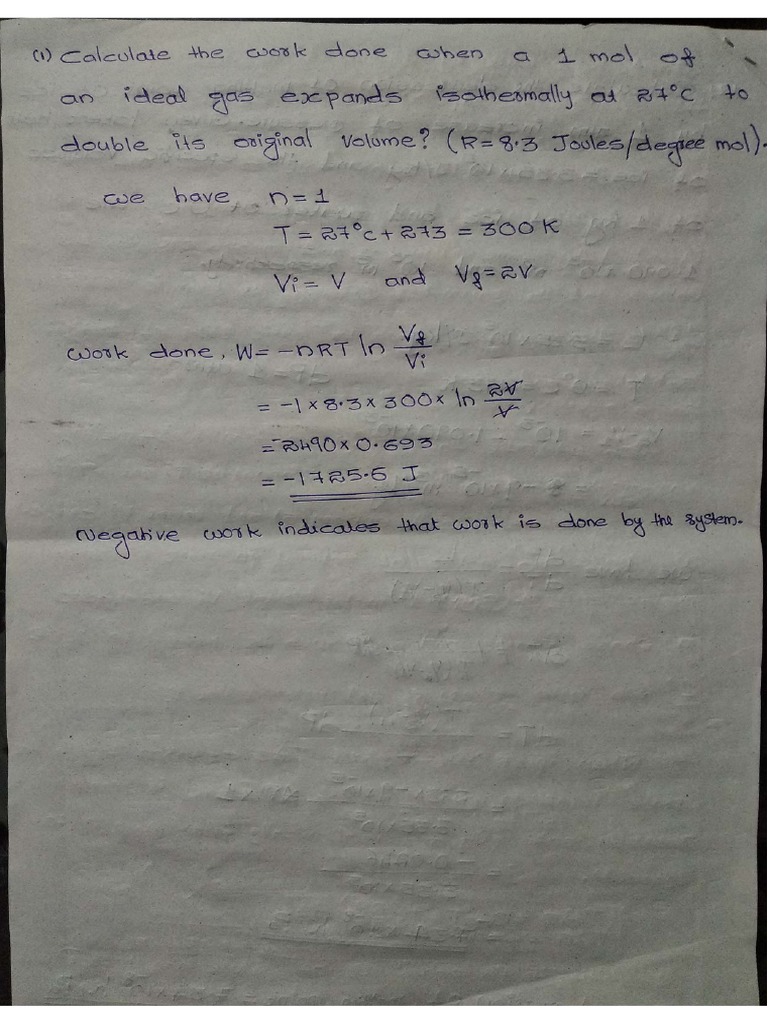 (1) Calculate the work done when a 1 mol of
an ideal gas expands isothermally at 27°C to
double its original volume? (R=8.3 Joules/degree mol).
we have n=1
T = 27°C + 273 = 300 K
Vi = V and Vf = 2V
Work done, W = -nRT ln Vf/Vi
= -1 × 8.3 × 300 × ln 2V/V
= -2490 × 0.693
= -1725.5 J
Negative work indicates that work is done by the system.